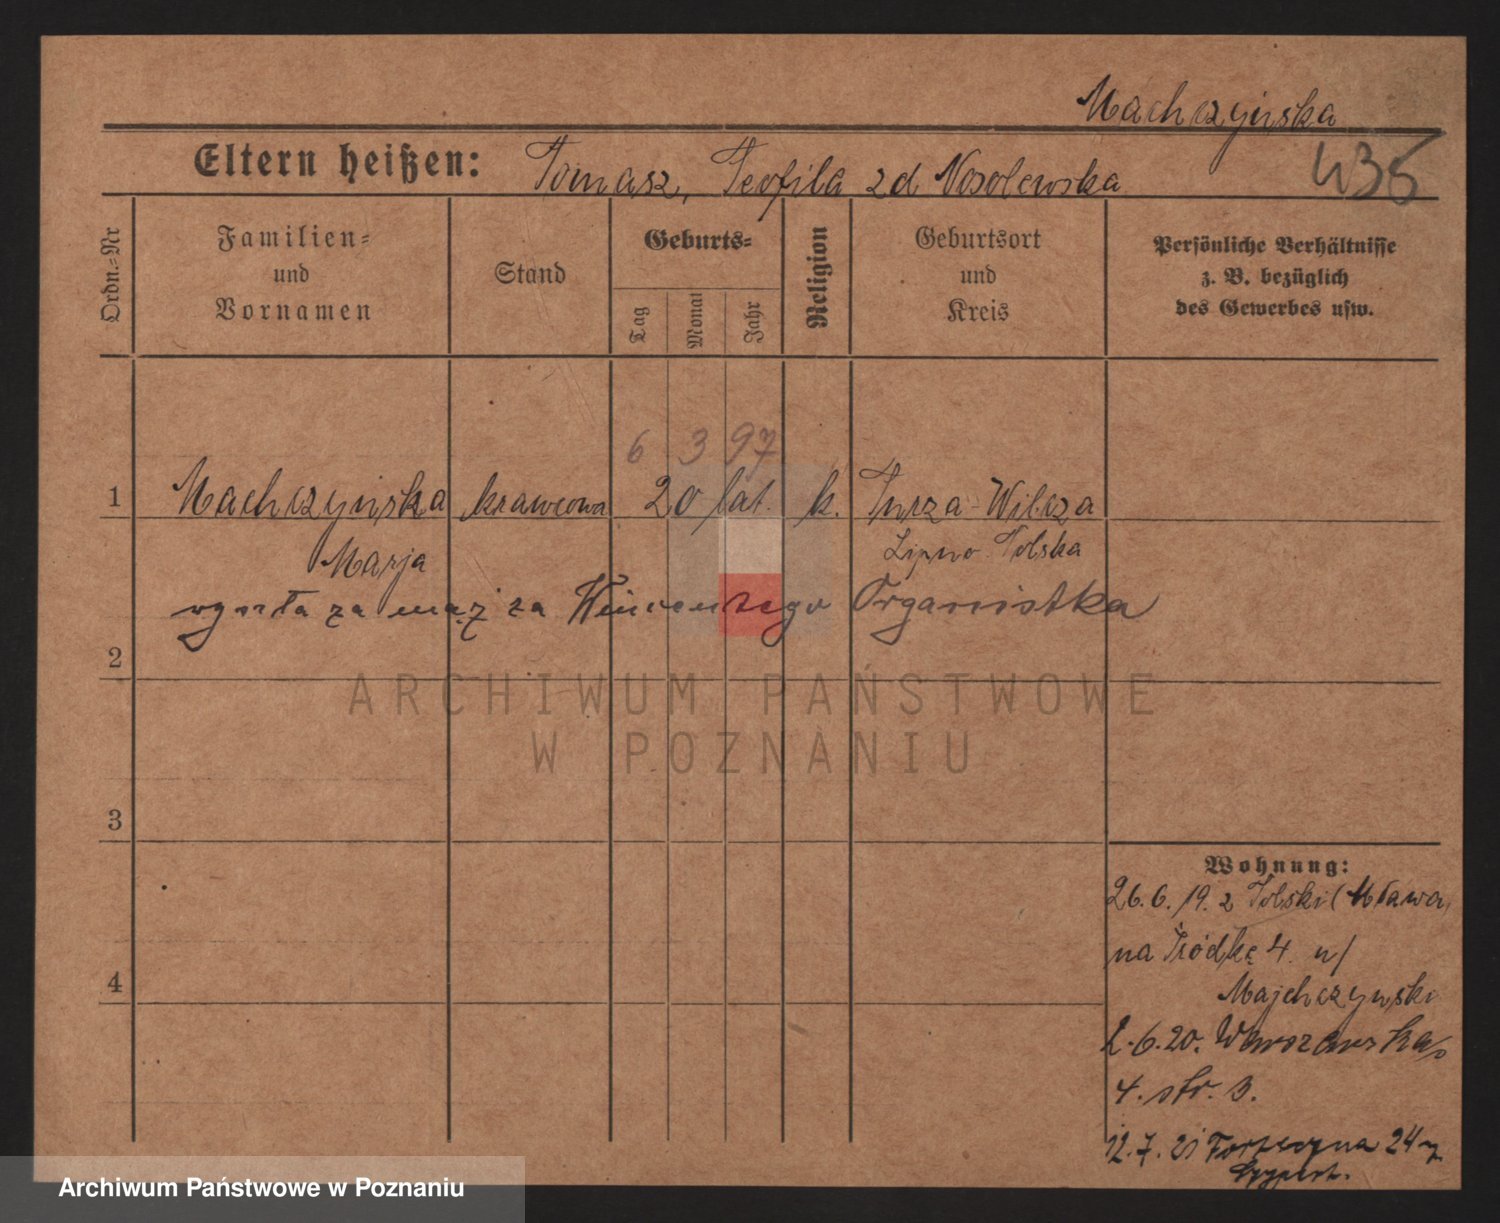 Machczyńska
Eltern heißen: Tomasz, Teofila zd Nosolewska
435
Ordn.-Nr
Familien-
und
Vornamen
Stand
Geburts-
Tag
Monat
Jahr
Religion
Geburtsort
und
Kreis
Persönliche Verhältnisse
z. B. bezüglich
des Gewerbes usw.
6 3 97
1 Machczyńska krawcowa 20 lat. k. Turza-Wilcza
Marja Lipno Polska
wyszła za mąż za Wincentego Organistka
2
ARCHIWUM PAŃSTWOWE
W POZNANIU
3
Wohnung:
26.6.19. z Polski (Mława,
na Śródkę 4. u/
4
Majchczyński
2.6.20. Warszawska
4. str. 3.
12.7.21 Forteczna 24
Archiwum Państwowe w Poznaniu